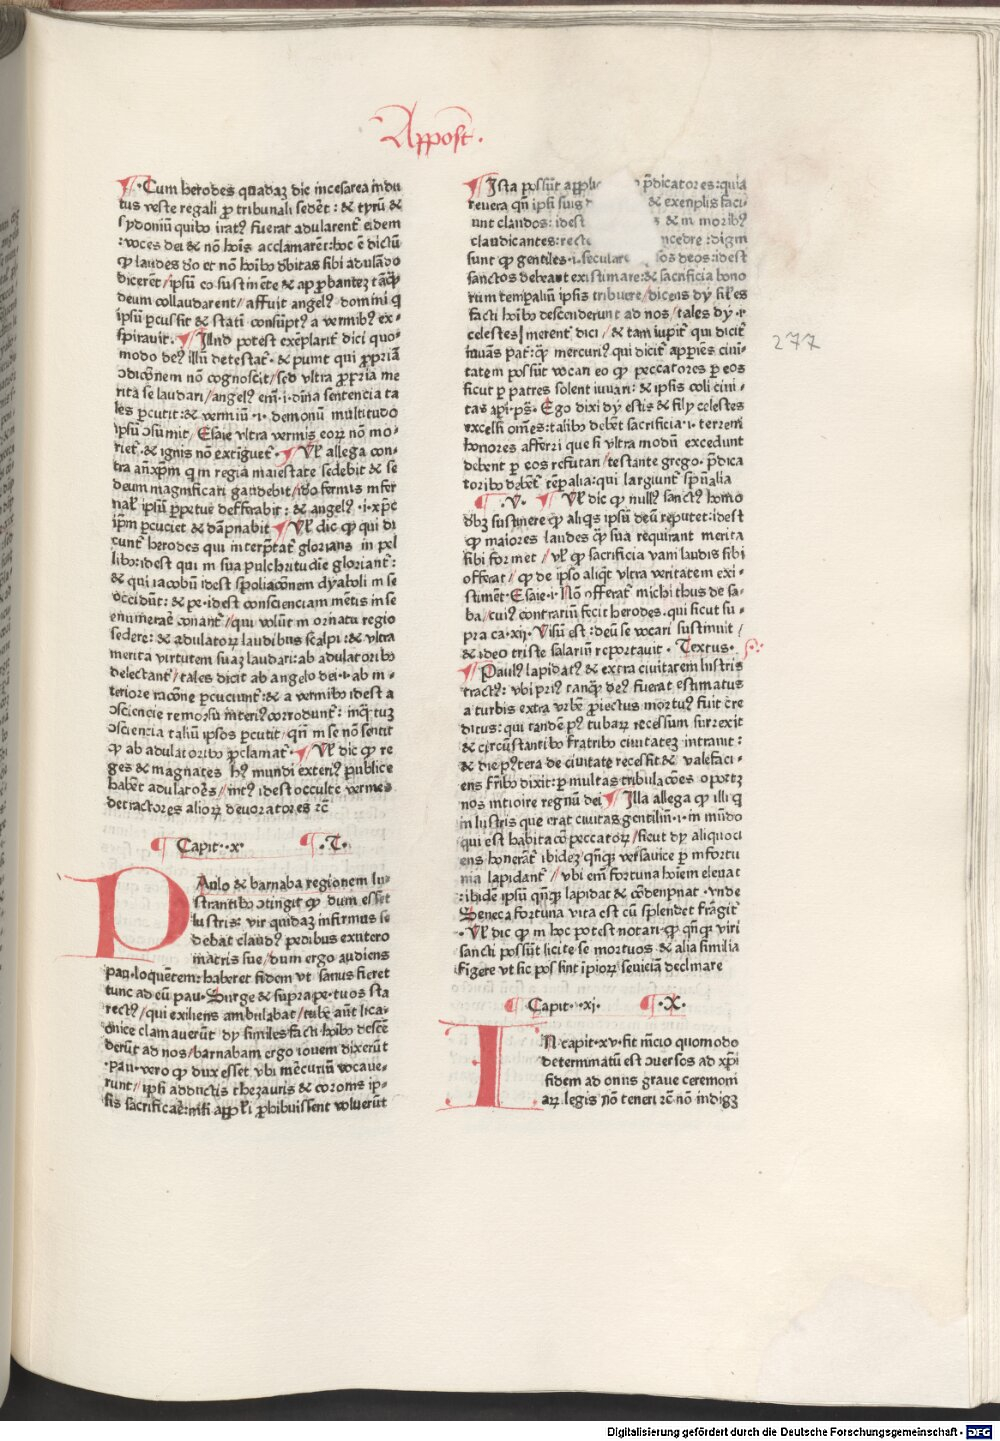 Appost̄.
¶ ·Cum herodes quadaꝫ die incesarea indu
tus veste regali ꝑ tribunali sedēt : & tyrū &
sydoniū quibꝰ irat⁹ fuerat adularent᷑ eidem
:voces dei & nō hoīs acclamarēt:hoc ē dictū
ꝙ laudes dō et nō hoībꝰ dbitas sibi adulādo
dicerēt/ipsū eo sustinēte & approbanteꝫ tāꝙ
deum collaudarent/ affuit angelꝰ domini q
ipsū ꝑcussit & statī consūptꝰ a vermibꝰ ex⸗
spirauit. ¶ Illud potest exēplarit᷑ dici quo⸗
modo deꝰ illū detestat᷑ · & punit qui ꝓpriā
ↄdicōnem nō cognoscit/sed vltra ꝓpria me
rita se laudari/angelꝰ enī·i·diuīa sentencia ta
les ꝑcutit:& vermiū ·i· demonū multitudo
ipsū ↄsumit/Esaie vltra vermis eorꝝ nō mo⸗
riet᷑·& ignis nō extīguet᷑·¶ Vl̄ allega con⸗
tra anxp̄m q in regia maiestate sedebit & se
deum magnificari gaudebit/idō fermis infer
nal᷑ ipsū ꝑpetue defferabit : & angelꝰ ·i·xp̄c
ip̄m ꝑcuciet & dāpnabit ¶ Vl̄ dic ꝙ qui di
cunt᷑ herodes qui interp̄tat᷑ glorians in pel
libꝰ:idest qui in sua pulchritudīe gloriant᷑ :
& qui iacobū idest spoliacōnem dyaboli in se
occidūt: & pe·idest conscienciam mētis in se
enumerat᷑ conant᷑ /qui volūt in ornatu regio
sedere: & adulatorꝝ laudibus scalpi :& vltra
merita virtutem suaꝝ laudari:ab adulatoribꝰ
delectant᷑/tales dicit ab angelo dei·i·ab in⸗
teriore racōne ꝑcuciunt᷑:& a vermibꝰ idest a
ↄsciencie remorsu interiꝰ corrodunt᷑: inq̄tuꝫ
ↄsciencia taliū ipsos ꝑcutit/qn̄ in se nō sentit
ꝙ ab adulatoribꝰ ꝓclamat᷑·¶ Vl̄ dic ꝙ re
ges & magnates hꝰ mundi exteriꝰ publice
habēt adulatores/intꝰ idest occulte vermes
detractores aliorꝝ deuoratores ꝛc̄
¶ Capit··x· ¶·T·
PAulo & barnaba regionem lu⸗
strantibꝰ ↄtingit ꝙ dum esset
lustris: vir quidaꝫ infirmus se
debat claudꝰ pedibus exutero
matris sue/dum ergo audiens
pau·loquētem:haberet fidem vt sanus fieret
tunc ad eū pau·Surge & supra pe·tuos sta
rectꝰ/qui exiliens ambulabat/turbe aūt lica⸗
onice clamauerūt dy similes facti hoībꝰ descē
derūt ad nos/barnabam ergo iouem dixerūt
·pau·vero ꝙ dux esset vbi mēcuriū vocaue⸗
runt/ ipsi addictis thezauris & coronis ip⸗
sis sacrificare:nisi app̄l̄i ꝓhibuissent voluerūt
¶ Ista possūt applic p̄dicatores:quia
reuera qn̄ ipsi suis & exenplis faci⸗
unt claudos: idest & in moribꝰ
claudicantes: recte incedre :digni
sunt ꝙ gentiles·i·seculare sos deos:idest
sanctos debeant existimare:& sacrificia bono
rum temꝑaliū ipsis tribuere/dicens dȳ sil̄es
facti hoībꝰ descenderunt ad nos/tales dȳ·i·
celestes merent᷑ dici / & tam iupit᷑ qui dicit᷑
iuuās pat᷑: ꝙ mercuriꝰ qui dicit᷑ apperiēs ciui⸗
tatem possūt vocari eo ꝙ peccatores ꝑ eos
sicut ꝑ patres solent iuuari: & ipsis celi ciui⸗
tas apı̄·ps·Ego dixi dȳ estis & filȳ celestes
excelsi oм̄es:talibꝰ debēt sacrificia·i·terreni
honores afferri que si vltra modū excedunt
debent ꝑ eos refutari/testante grego·p̄dica
toribꝰ debēt᷑ tēꝑalia:qui largiunt᷑ spūalia
¶·V· ¶ Vl̄ dic ꝙ nullꝰ sanctꝰ homo
dbꝫ sustinere ꝙ aliqs ipsū deū reputet:idest
ꝙ maiores laudes ꝙ sua requirant merita
sibi formet /vl̄ ꝙ sacrificia vani laudis sibi
offerat/ ꝙ de ipso aliqt vltra veritatem exi⸗
stimēt·Esaie·i·Nō offerat᷑ michi thus de sa⸗
ba/cuiꝰ contrariū fecit herodes·qui sicut su⸗
pra ca·xij·Visū est: deū se vocari sustinuit /
& ideo triste salariū reportauit · Textus·
¶ Paulꝰ lapidatꝰ & extra ciuitatem lustris
tractꝰ: vbi priꝰ tanꝙ deꝰ fuerat estimatus
a turbis extra vrbē ꝓiectus mortuꝰ fuit cre
ditus: qui tandē pꝰ tubarꝝ recessum surrexit
& circūstantibꝰ fratribꝰ ciuitateꝫ intrauit :
& die pꝰtera de ciuitate recessit & valefaci⸗
ens fribꝰ dixit: ꝑ multas tribulacōes oportꝫ
nos introire regnū dei ¶ Illa allega ꝙ illi q
in lustris que erat ciuitas gentiliū·i·in mūdo
qui est habitacō peccatorꝝ/sicut dȳ aliquoci
ens honerāt᷑ ibideꝫ/qn̄qꝫ versauice ꝑ infortu
nia lapidant᷑ /vbi em̄ fortuna hoīem eleuat
:ibidē ipsū qn̄qꝫ lapidat & cōdenpnat·vnde
Seneca fortuna vita est cū splendet frāgit᷑
·Vl̄ dic ꝙ in hoc potest notari·ꝙ qn̄qꝫ viri
sancti possūt licite se mortuos & alia similia
figere vt sic possint īpiorꝝ seuiciā declinare
¶ Capit··xi· ¶·X·
IN capit·xv·fit mēcio quomodo
determinatū est ↄuersos ad xp̄i
fidem ad onus graue ceremoni
arꝝ legis nō teneri ꝛc̄ nō indigꝫ
277
Digitalisierung gefördert durch die Deutsche Forschungsgemeinschaft - DFG